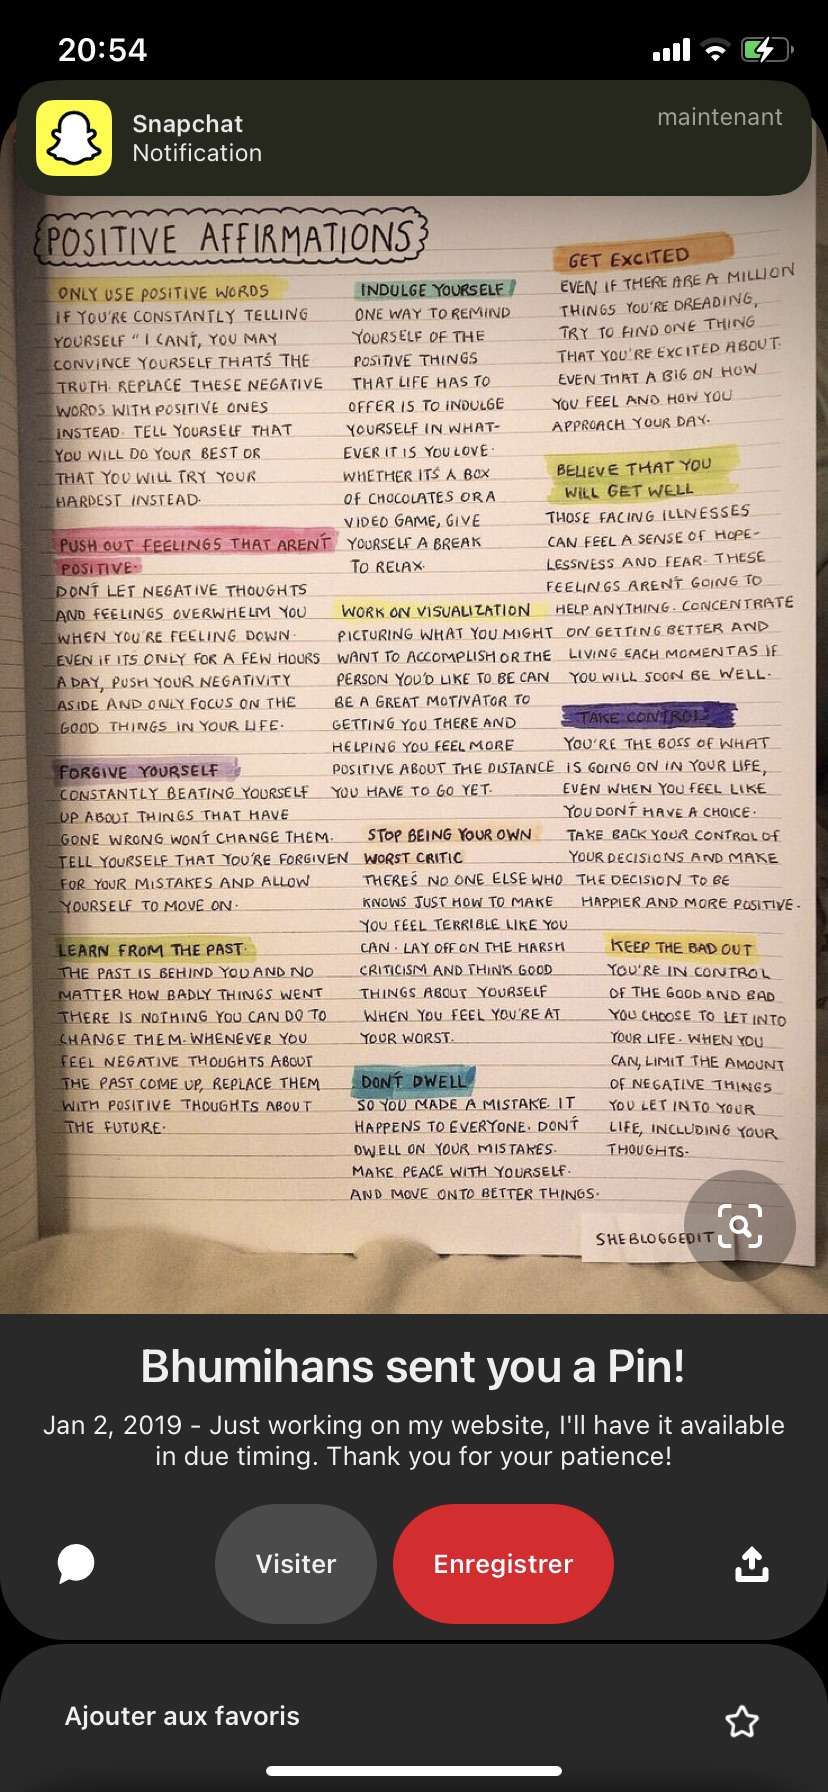 20:54
Snapchat
maintenant
Notification
POSITIVE AFFIRMATIONS
ONLY USE POSITIVE WORDS
IF YOU'RE CONSTANTLY TELLING
YOURSELF "I CAN'T, YOU MAY
CONVINCE YOURSELF THAT'S THE
TRUTH. REPLACE THESE NEGATIVE
WORDS WITH POSITIVE ONES
INSTEAD. TELL YOURSELF THAT
YOU WILL DO YOUR BEST OR
THAT YOU WILL TRY YOUR
HARDEST INSTEAD.
PUSH OUT FEELINGS THAT AREN'T
POSITIVE.
DON'T LET NEGATIVE THOUGHTS
AND FEELINGS OVERWHELM YOU
WHEN YOU'RE FEELING DOWN.
EVEN IF ITS ONLY FOR A FEW HOURS
A DAY, PUSH YOUR NEGATIVITY
ASIDE AND ONLY FOCUS ON THE
GOOD THINGS IN YOUR LIFE.
FORGIVE YOURSELF
CONSTANTLY BEATING YOURSELF
UP ABOUT THINGS THAT HAVE
GONE WRONG WON'T CHANGE THEM.
TELL YOURSELF THAT YOU'RE FORGIVEN
FOR YOUR MISTAKES AND ALLOW
YOURSELF TO MOVE ON.
LEARN FROM THE PAST.
THE PAST IS BEHIND YOU AND NO
MATTER HOW BADLY THINGS WENT
THERE IS NOTHING YOU CAN DO TO
CHANGE THEM. WHENEVER YOU
FEEL NEGATIVE THOUGHTS ABOUT
THE PAST COME UP, REPLACE THEM
WITH POSITIVE THOUGHTS ABOUT
THE FUTURE.
INDULGE YOURSELF
ONE WAY TO REMIND
YOURSELF OF THE
POSITIVE THINGS
THAT LIFE HAS TO
OFFER IS TO INDULGE
YOURSELF IN WHAT-
EVER IT IS YOU LOVE.
WHETHER IT'S A BOX
OF CHOCOLATES OR A
VIDEO GAME, GIVE
YOURSELF A BREAK
TO RELAX.
WORK ON VISUALIZATION
PICTURING WHAT YOU MIGHT
WANT TO ACCOMPLISH OR THE
PERSON YOU'D LIKE TO BE CAN
BE A GREAT MOTIVATOR TO
GETTING YOU THERE AND
HELPING YOU FEEL MORE
POSITIVE ABOUT THE DISTANCE
YOU HAVE TO GO YET.
STOP BEING YOUR OWN
WORST CRITIC
THERE'S NO ONE ELSE WHO
KNOWS JUST HOW TO MAKE
YOU FEEL TERRIBLE LIKE YOU
CAN. LAY OFF ON THE HARSH
CRITICISM AND THINK GOOD
THINGS ABOUT YOURSELF
WHEN YOU FEEL YOU'RE AT
YOUR WORST.
DON'T DWELL
SO YOU MADE A MISTAKE. IT
HAPPENS TO EVERYONE. DON'T
DWELL ON YOUR MISTAKES.
MAKE PEACE WITH YOURSELF.
AND MOVE ONTO BETTER THINGS.
GET EXCITED
EVEN IF THERE ARE A MILLION
THINGS YOU'RE DREADING,
TRY TO FIND ONE THING
THAT YOU'RE EXCITED ABOUT.
EVEN THAT A BIG ON HOW
YOU FEEL AND HOW YOU
APPROACH YOUR DAY.
BELIEVE THAT YOU
WILL GET WELL
THOSE FACING ILLNESSES
CAN FEEL A SENSE OF HOPE-
LESSNESS AND FEAR. THESE
FEELINGS AREN'T GOING TO
HELP ANYTHING. CONCENTRATE
ON GETTING BETTER AND
LIVING EACH MOMENT AS IF
YOU WILL SOON BE WELL.
TAKE CONTROL
YOU'RE THE BOSS OF WHAT
IS GOING ON IN YOUR LIFE,
EVEN WHEN YOU FEEL LIKE
YOU DON'T HAVE A CHOICE.
TAKE BACK YOUR CONTROL OF
YOUR DECISIONS AND MAKE
THE DECISION TO BE
HAPPIER AND MORE POSITIVE.
KEEP THE BAD OUT
YOU'RE IN CONTROL
OF THE GOOD AND BAD
YOU CHOOSE TO LET INTO
YOUR LIFE. WHEN YOU
CAN, LIMIT THE AMOUNT
OF NEGATIVE THINGS
YOU LET INTO YOUR
LIFE, INCLUDING YOUR
THOUGHTS.
SHEBLOGGEDIT
Bhumihans sent you a Pin!
Jan 2, 2019 - Just working on my website, I'll have it available
in due timing. Thank you for your patience!
Visiter
Enregistrer
Ajouter aux favoris